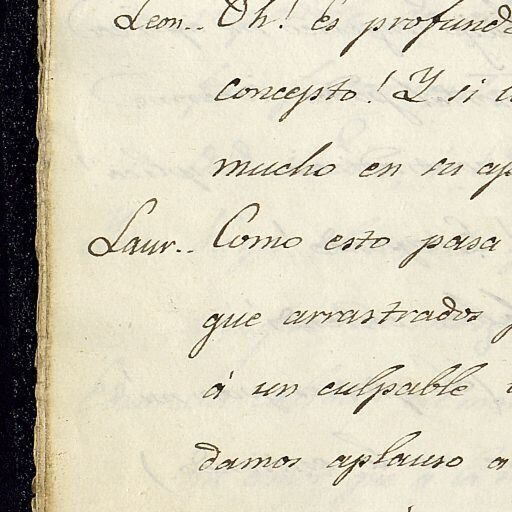 Leon.. Oh! és profund
concepto! Y si
mucho en su ap
Laur.. Como esto pasa
que arrastrados
á un culpable
damos aplauso a